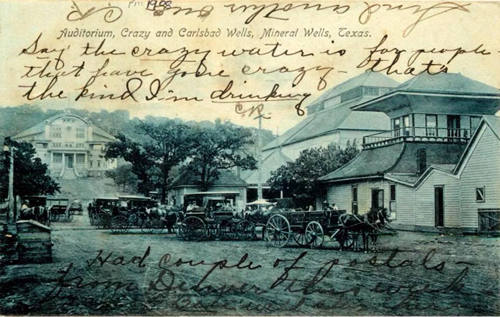 Pm 1908
Auditorium, Crazy and Carlsbad Wells, Mineral Wells, Texas.
Say the crazy water is for people
that have gone crazy - thats
the kind I'm drinking
Had couple of postals
from Denver this week